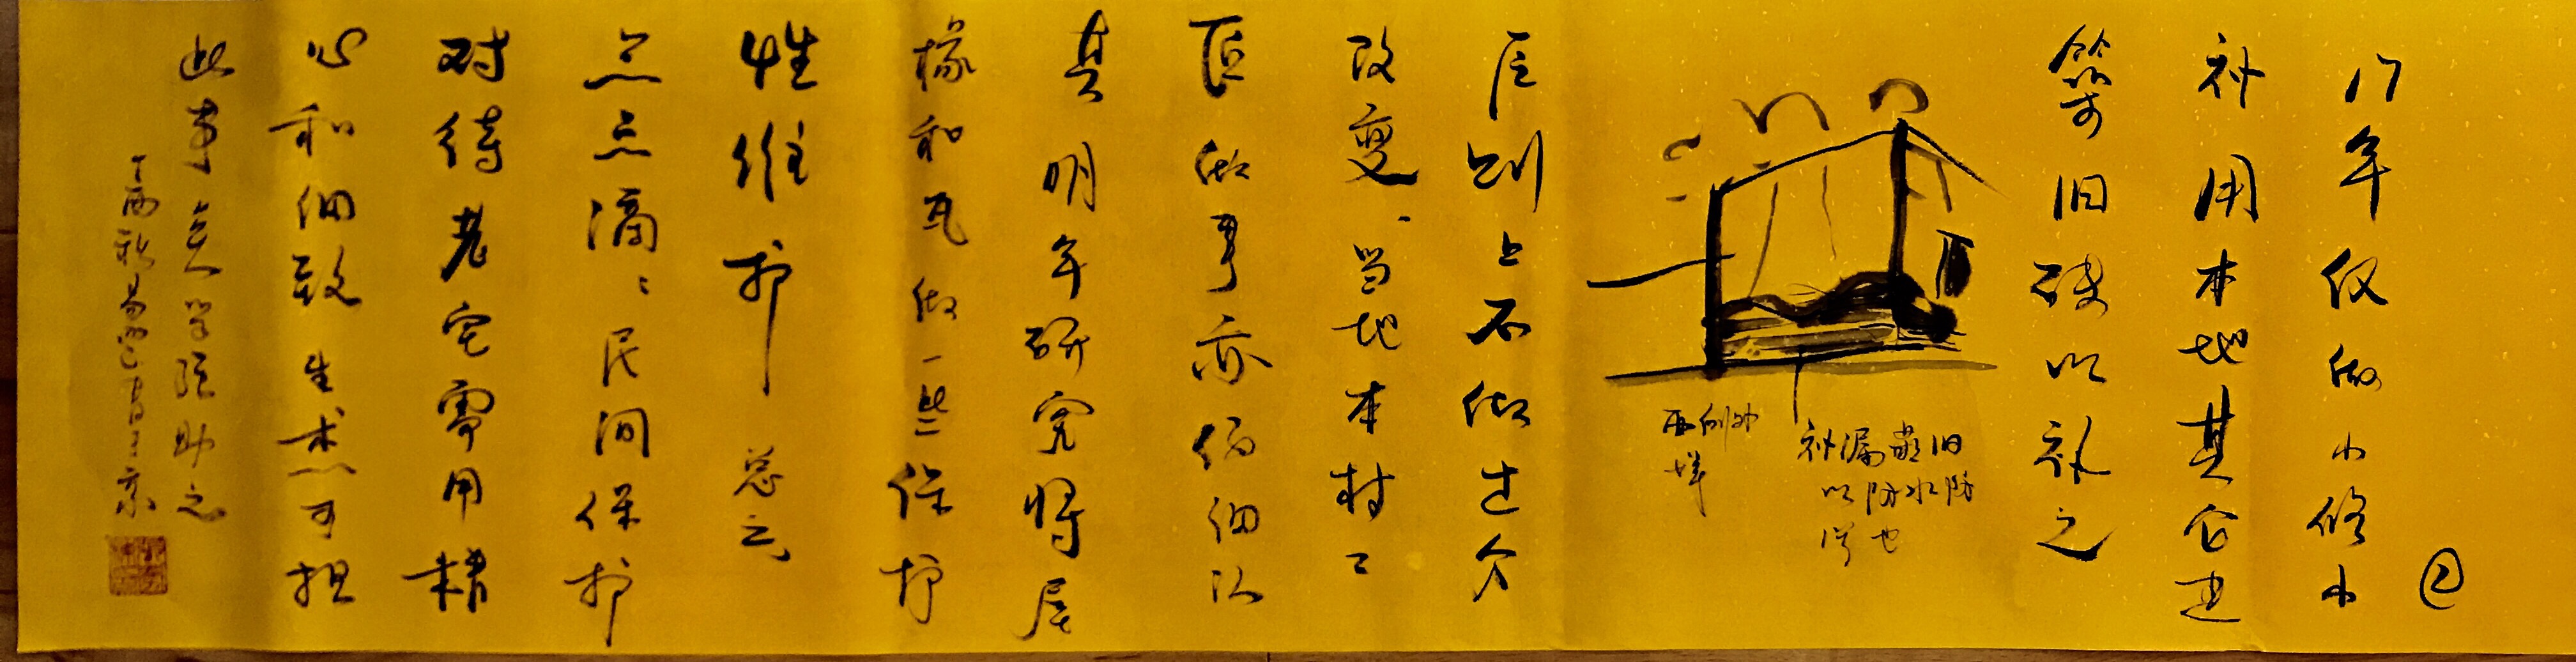 ②
17年仅做小修小
补用本地其它建
筑旧砖以补之
补漏前旧
以防水防
潮也
两侧加
原则上不做过分
改变、当地本村工
匠做事亦仔细认
真明年研究将屋
椽和瓦做一些保护
性维护 总之
点点滴滴民间保护
对待老宅需用精
心和细致生态可担
此事 学院助之
丁酉秋